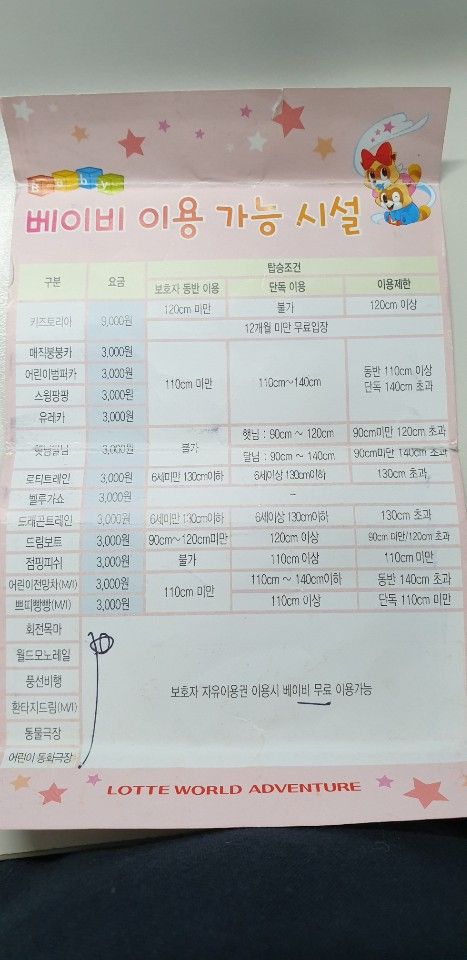 Baby
베이비 이용 가능 시설
구분 요금 탑승조건
보호자 동반 이용 단독 이용 이용제한
키즈토리아 9,000원 120cm 미만 불가 120cm 이상
12개월 미만 무료입장
매직붕붕카 3,000원
어린이범퍼카 3,000원
스윙팡팡 3,000원
유레카 3,000원
110cm 미만 110cm~140cm 동반 110cm 이상
단독 140cm 초과
햇님달님 3,000원 불가 햇님 : 90cm ~ 120cm 90cm미만 120cm 초과
달님 : 90cm ~ 140cm 90cm미만 140cm 초과
로티트레인 3,000원 6세미만 130cm이하 6세이상 130cm이하 130cm 초과
벨루가쇼 3,000원 –
드래곤트레인 3,000원 6세미만 130cm이하 6세이상 130cm이하 130cm 초과
드림보트 3,000원 90cm~120cm미만 120cm 이상 90cm 미만/120cm 초과
점핑피쉬 3,000원 불가 110cm 이상 110cm 미만
어린이전망차(M/I) 3,000원 110cm 미만 110cm ~ 140cm이하 동반 140cm 초과
쁘띠빵빵(M/I) 3,000원 110cm 이상 단독 110cm 미만
회전목마
월드모노레일
풍선비행
환타지드림(M/I)
동물극장
어린이 동화극장
보호자 자유이용권 이용시 베이비 무료 이용가능
LOTTE WORLD ADVENTURE